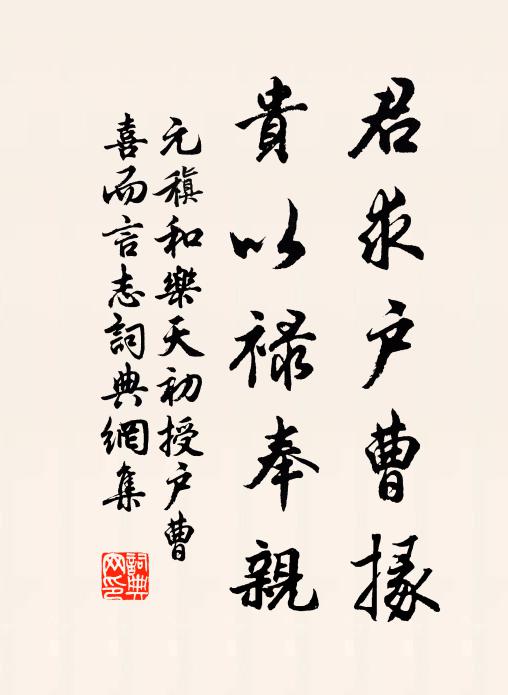 君求户曹掾
貴以祿奉親
元稹和樂天初授户曹
喜而言志詞典網集
詞典網印